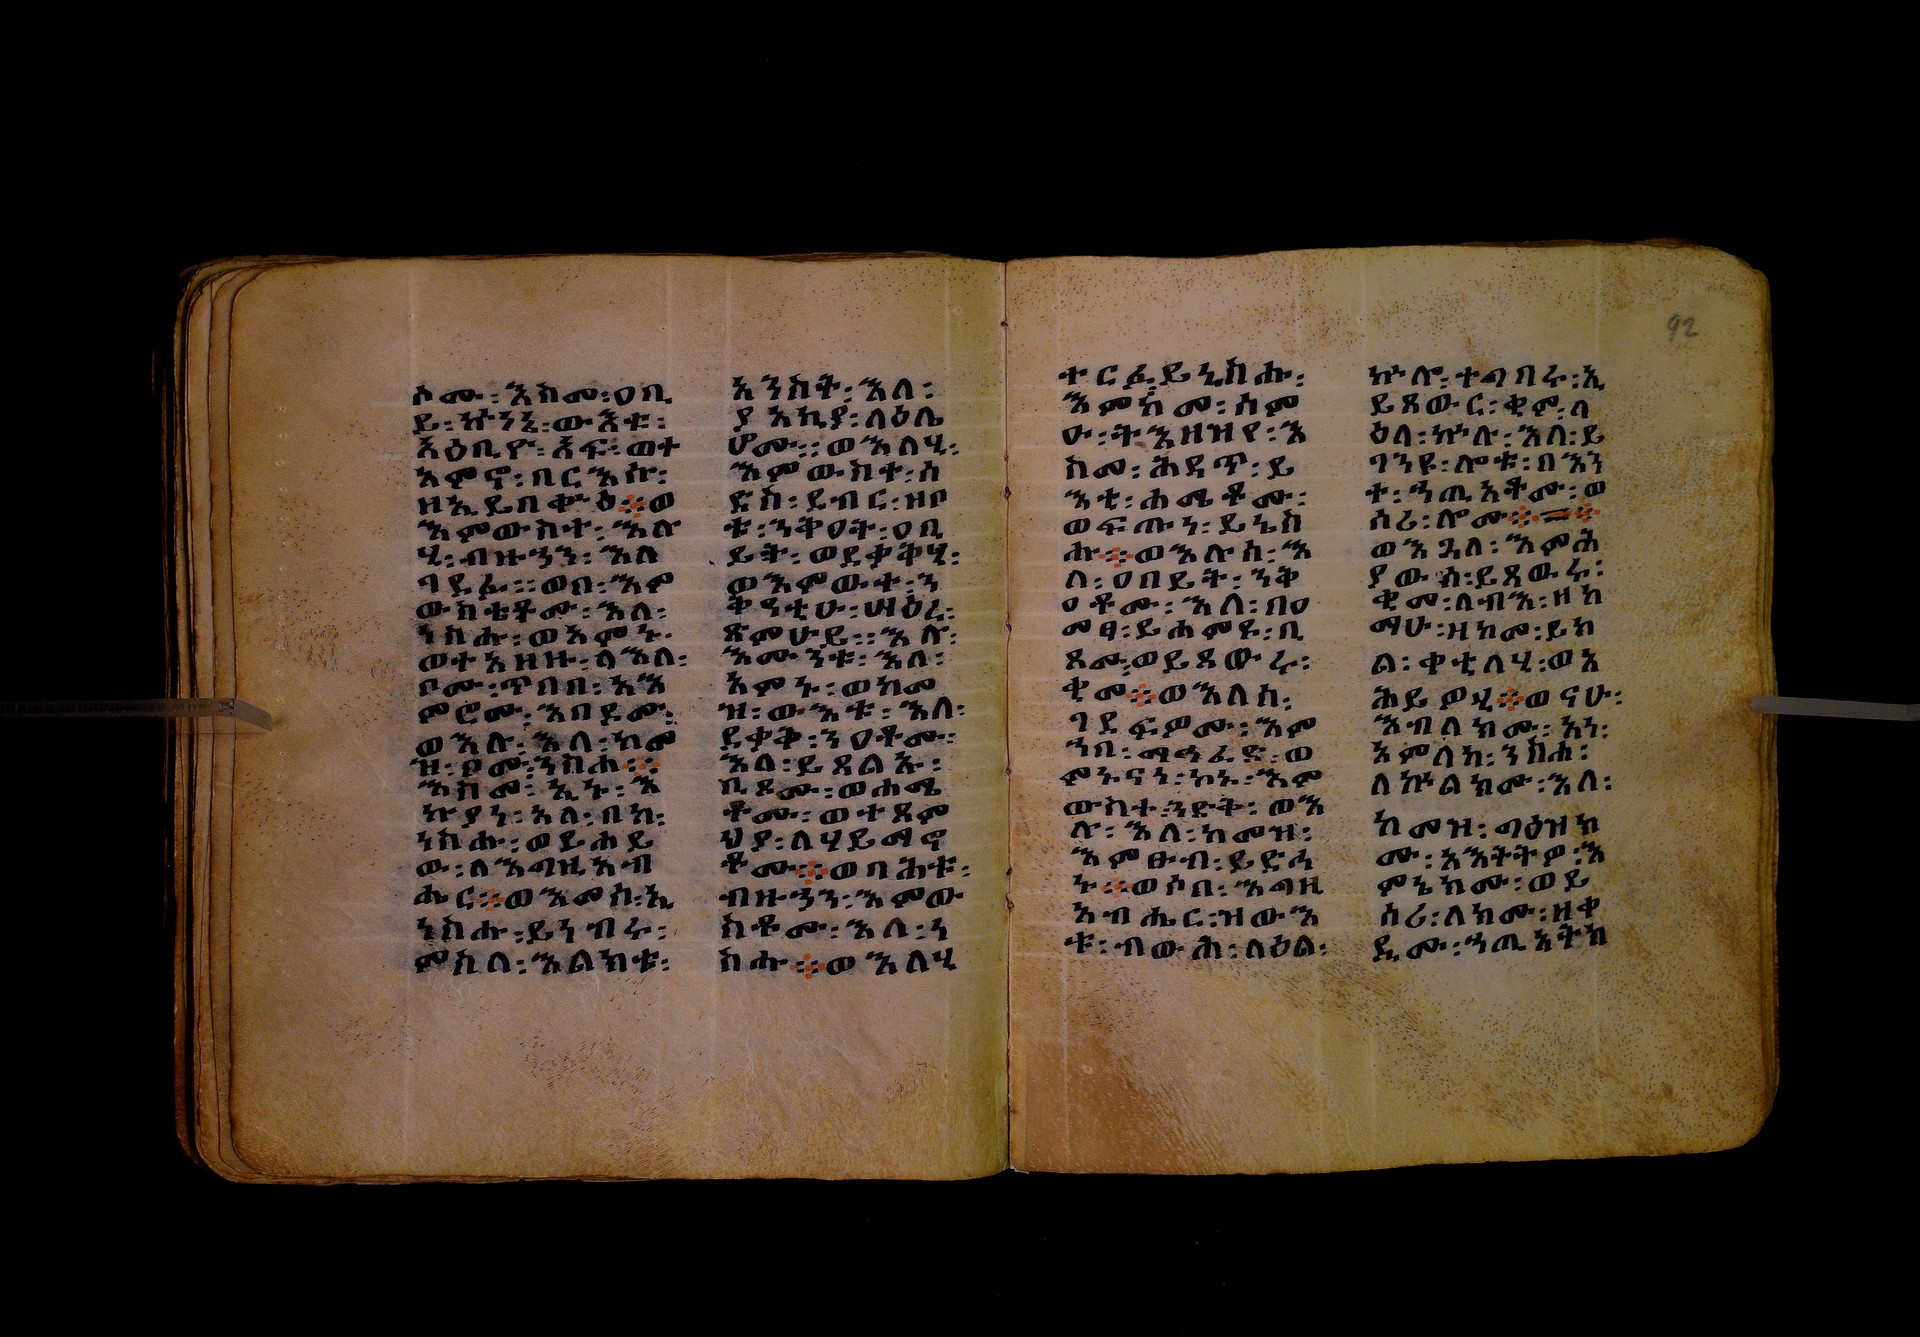 ሶሙ፡እስመ፡ዐቢ
ይ፡ኵነኔ፡ውእቱ፡
እምኖ፡በርእሱ፡
ዘኢይበቍዕ፨ወ
እምውስተ፡እሉ
ሂ፡ብዙኃን፡እለ
ገደፉ፡፡ወበ፡እም
ውስቴቶሙ፡እለ፡
ነስሑ፡ወአምኑ፡
ወተአዘዙ፡ለእለ፡
ቦሙ፡ጥበብ፡እን
ወእሉ፡እለ፡ከመ
ዝ፡ቦሙ፡ንስሐ፨
እስመ፡ኢኑ፡እ
ኩያን፡እለ፡በከ፡
ነስሑ፡ወይሐይ
ዉ፡ለእግዚአብ
ሔር፨ወእመሰ፡ኢ
ነስሑ፡ይነብሩ፡
ምስለ፡እልክቱ፡
አንስት፡እለ፡
ያአኪያ፡ለዕሌ
ሆሙ፡፡ወእለሂ፡
እምውስተ፡ሰ
ድስ፡ደብር፡ዘቦ
ቱ፡ንቅዐት፡ዐቢ
ይት፡ወደቃቅሂ፡
ወእምውተ፡ን
ቅዓቲሁ፡ሣዕረ፡
ጽምሁይ፡፡እሉ፡
እሙንቱ፡እለ፡
አምኑ፡ወከመ
ዝ፡ውእቱ፡እለ፡
ደቃቅ፡ንዐቶሙ፡
እለ፡ይጻልኡ፡
ቢጾሙ፡ወሐሜ
ቶሙ፡ወተጸም
ህያ፡ለሃይማኖ
ቶሙ፨ወባሕቱ፡
ብዙኃን፡እምው
ስቶሙ፡እለ፡ነ
ስሑ፨ወእለሂ
ተርፉ፡ይኔስሑ፡
እምከመ፡ሰም
ዑ፡ትእዘዝየ፡እ
ስመ፡ሕዳጥ፡ይ
እቲ፡ሐሜቶሙ፡
ወፍጡነ፡ይኔስ
ሑ፨ወእሉሰ፡እ
ለ፡ዐበይት፡ንቅ
ዐቶሙ፡እለ፡በዐ
መፃ፡ይሐምዩ፡ቢ
ጾሙ፡ወይጸውሩ፡
ቂመ፨ወእለሰ፡
ገደፍዎሙ፡እም
ኀበ፡ማኅፈድ፡ወ
ምኑናነ፡ኮኑ፡እም
ውስተ፡ንድቅ፡ወእ
ሉ፡እለ፡ከመዝ፡
እምፁብ፡ይድኅ
ኑ፨ወሶበ፡እግዚ
አብሔር፡ዝውእ
ቱ፡ብውሕ፡ለዕለ፡
ኵሎ፡ተግበሩ፡ኢ
ይጸውር፡ቂም፡ላ
ዕለ፡ኵሉ፡እለ፡ይ
ገንዩ፡ሎቱ፡በእን
ተ፡ኀጢአቶሙ፡ወ
ሰሪ፡ሎሙ፨
ወእጓለ፡እምሕ
ያውሰ፡ይጸውሩ፡
ቂመ፡ለብእ፡ዘከ
ማሁ፡ዘከመ፡ይክ
ል፡ቀቲለሂ፡ወአ
ሕይዎሂ፨ወናሁ፡
እብለክሙ፡አነ፡
እምላከ፡ንስሐ፡
ለኵልክሙ፡እለ፡
ከመዝ፡ግዕዝክ
ሙ፡አእትትዎ፡እ
ምኔክሙ፡ወይ
ሰሪ፡ለክሙ፡ዘቀ
ዲሙ፡ኀጢአትክ
92